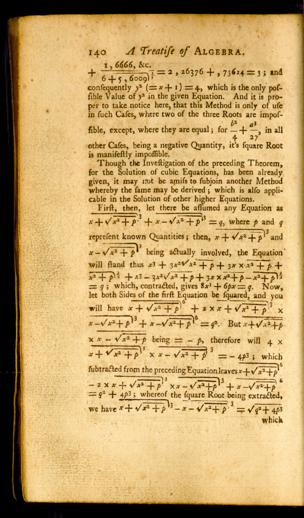 140 A Treatise of ALGEBRA.
+ 1, 6666, &c. / 6 + 5, 6009)⅓ = 2, 26376 +, 73624 = 3; and
consequently y² (= x + 1) = 4, which is the only pos-
sible Value of y² in the given Equation. And it is pro-
per to take notice here, that this Method is only of use
in such Cases, where two of the three Roots are impos-
sible, except, where they are equal; for b²/4 + a³/27, in all
other Cases, being a negative Quantity, it's square Root
is manifestly impossible.
Though the Investigation of the preceding Theorem,
for the Solution of cubic Equations, has been already
given, it may not be amiss to subjoin another Method
whereby the same may be derived; which is also appli-
cable in the Solution of other higher Equations.
First, then, let there be assumed any Equation as
x + √x² + p)³ + x − √x² + p)³ = q, where p and q
represent known Quantities; then, x + √x² + p)³ and
x − √x² + p)³ being actually involved, the Equation
will stand thus x³ + 3x²√x² + p + 3x × x² + p +
x² + p)^3/2 + x³ − 3x²√x² + p + 3x × x² + p − x² + p)^3/2
= q; which, contracted, gives 8x³ + 6px = q. Now,
let both Sides of the first Equation be squared, and you
will have x + √x² + p)⁶ + 2 × x + √x² + p)³ ×
x − √x² + p)³ + x − √x² + p)⁶ = q². But x + √x² + p
× x − √x² + p being = − p, therefore will 4 ×
x + √x² + p)³ × x − √x² + p)³ = − 4p³; which
subtracted from the preceding Equation leaves x + √x² + p)⁶
− 2 × x + √x² + p)³ × x − √x² + p)³ + x − √x² + p)⁶
= q² + 4p³; whereof the square Root being extracted,
we have x + √x² + p)³ − x − √x² + p)³ = √q² + 4p³
which